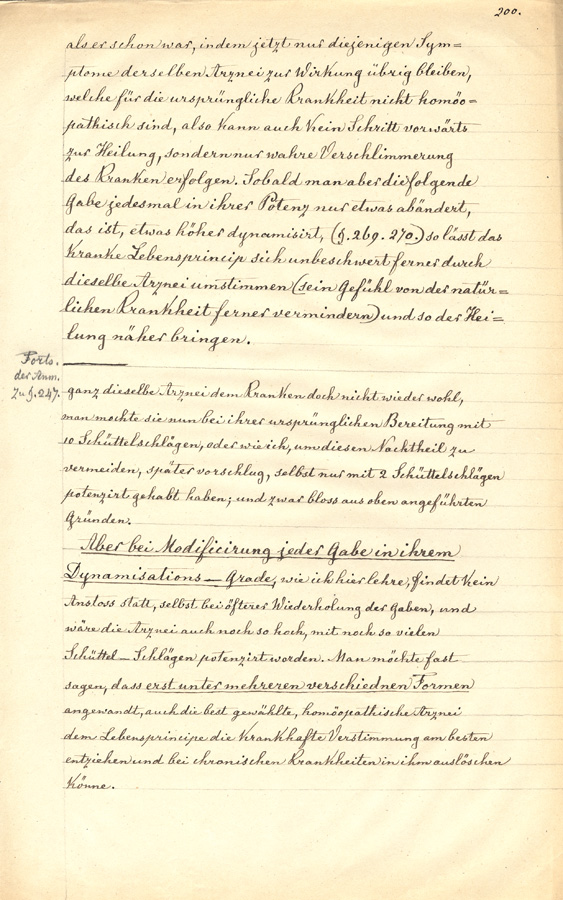 200.
als er schon war, indem jetzt nur diejenigen Sym=
ptome derselben Arznei zur Wirkung übrig bleiben,
welche für die ursprüngliche Krankheit nicht homöo=
pathisch sind, also kann auch kein Schritt vorwärts
zur Heilung, sondern nur wahre Verschlimmerung
des Kranken erfolgen. Sobald man aber die folgende
Gabe jedesmal in ihrer Potenz nur etwas abändert,
das ist, etwas höher dynamisirt, (§. 269. 270.) so lässt das
kranke Lebensprincip sich unbeschwert ferner durch
dieselbe Arznei umstimmen (sein Gefühl von der natür=
lichen Krankheit ferner vermindern) und so der Hei=
lung näher bringen.
Forts.
der Anm.
zu §. 247.
ganz dieselbe Arznei dem Kranken doch nicht wieder wohl,
man mochte sie nun bei ihrer ursprünglichen Bereitung mit
10 Schüttelschlägen, oder wie ich, um diesen Nachtheil zu
vermeiden, später vorschlug, selbst nur mit 2 Schüttelschlägen
potenzirt gehabt haben; und zwar bloss aus oben angeführten
Gründen.
Aber bei Modificirung jeder Gabe in ihrem
Dynamisations-Grade, wie ich hier lehre, findet kein
Anstoss statt, selbst bei öfterer Wiederholung der Gaben, und
wäre die Arznei auch noch so hoch, mit noch so vielen
Schüttel-Schlägen potenzirt worden. Man möchte fast
sagen, dass erst unter mehreren verschiednen Formen
angewandt, auch die best gewählte, homöopathische Arznei
dem Lebensprincipe die krankhafte Verstimmung am besten
entziehen und bei chronischen Krankheiten in ihm auslöschen
könne.